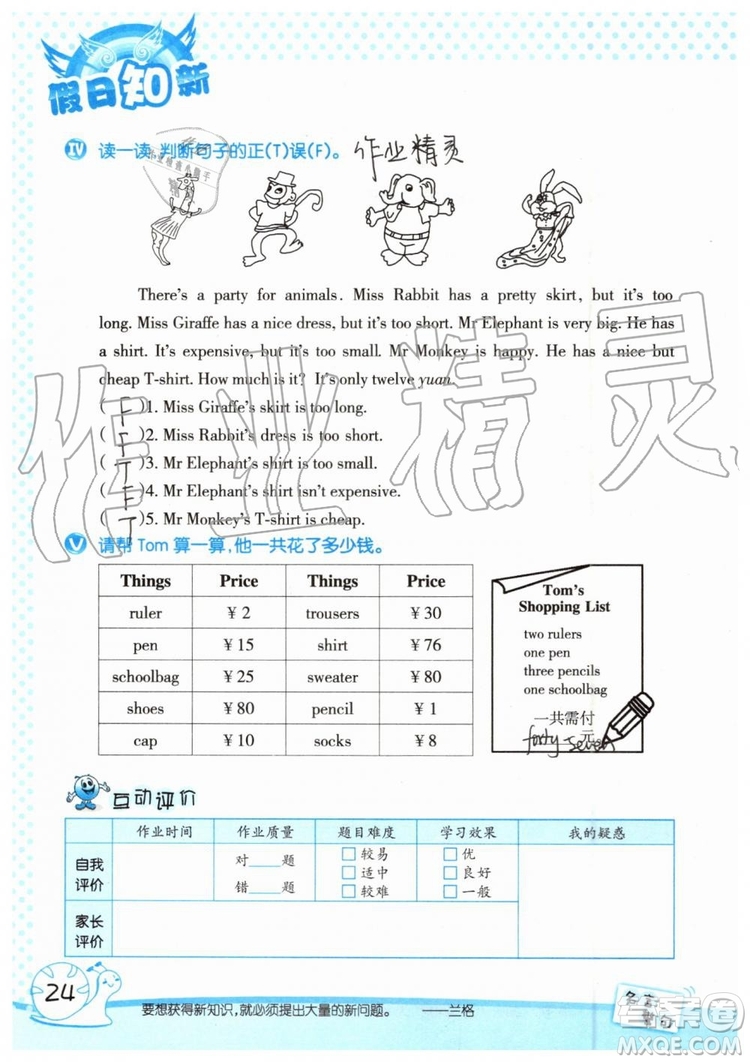 假日知新
IV 读一读,判断句子的正(T)误(F)。 作业精灵
There's a party for animals. Miss Rabbit has a pretty skirt, but it's too
long. Miss Giraffe has a nice dress, but it's too short. Mr Elephant is very big. He has
a shirt. It's expensive, but it's too small. Mr Monkey is happy. He has a nice but
cheap T-shirt. How much is it? It's only twelve yuan.
( F )1. Miss Giraffe's skirt is too long.
( F )2. Miss Rabbit's dress is too short.
( T )3. Mr Elephant's shirt is too small.
( F )4. Mr Elephant's shirt isn't expensive.
( T )5. Mr Monkey's T-shirt is cheap.
V 请帮 Tom 算一算,他一共花了多少钱。
Things Price Things Price
ruler ¥ 2 trousers ¥ 30
pen ¥ 15 shirt ¥ 76
schoolbag ¥ 25 sweater ¥ 80
shoes ¥ 80 pencil ¥ 1
cap ¥ 10 socks ¥ 8
Tom's
Shopping List
two rulers
one pen
three pencils
one schoolbag
一共需付
forty-seven 元
作业精灵
互动评价
作业时间 作业质量 题目难度 学习效果 我的疑惑
自我评价 对____题 错____题 □较易 □适中 □较难 □优 □良好 □一般
家长评价
24
要想获得新知识,就必须提出大量的新问题。 ——兰格
名言警句
答案圈
MXQE.COM